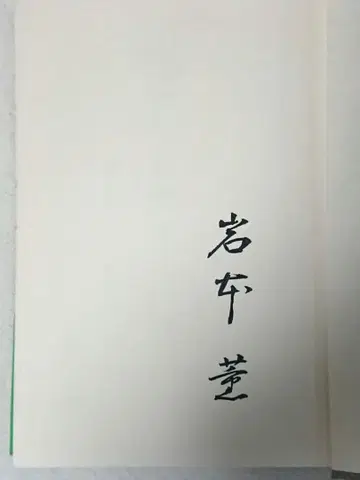 岩本薫